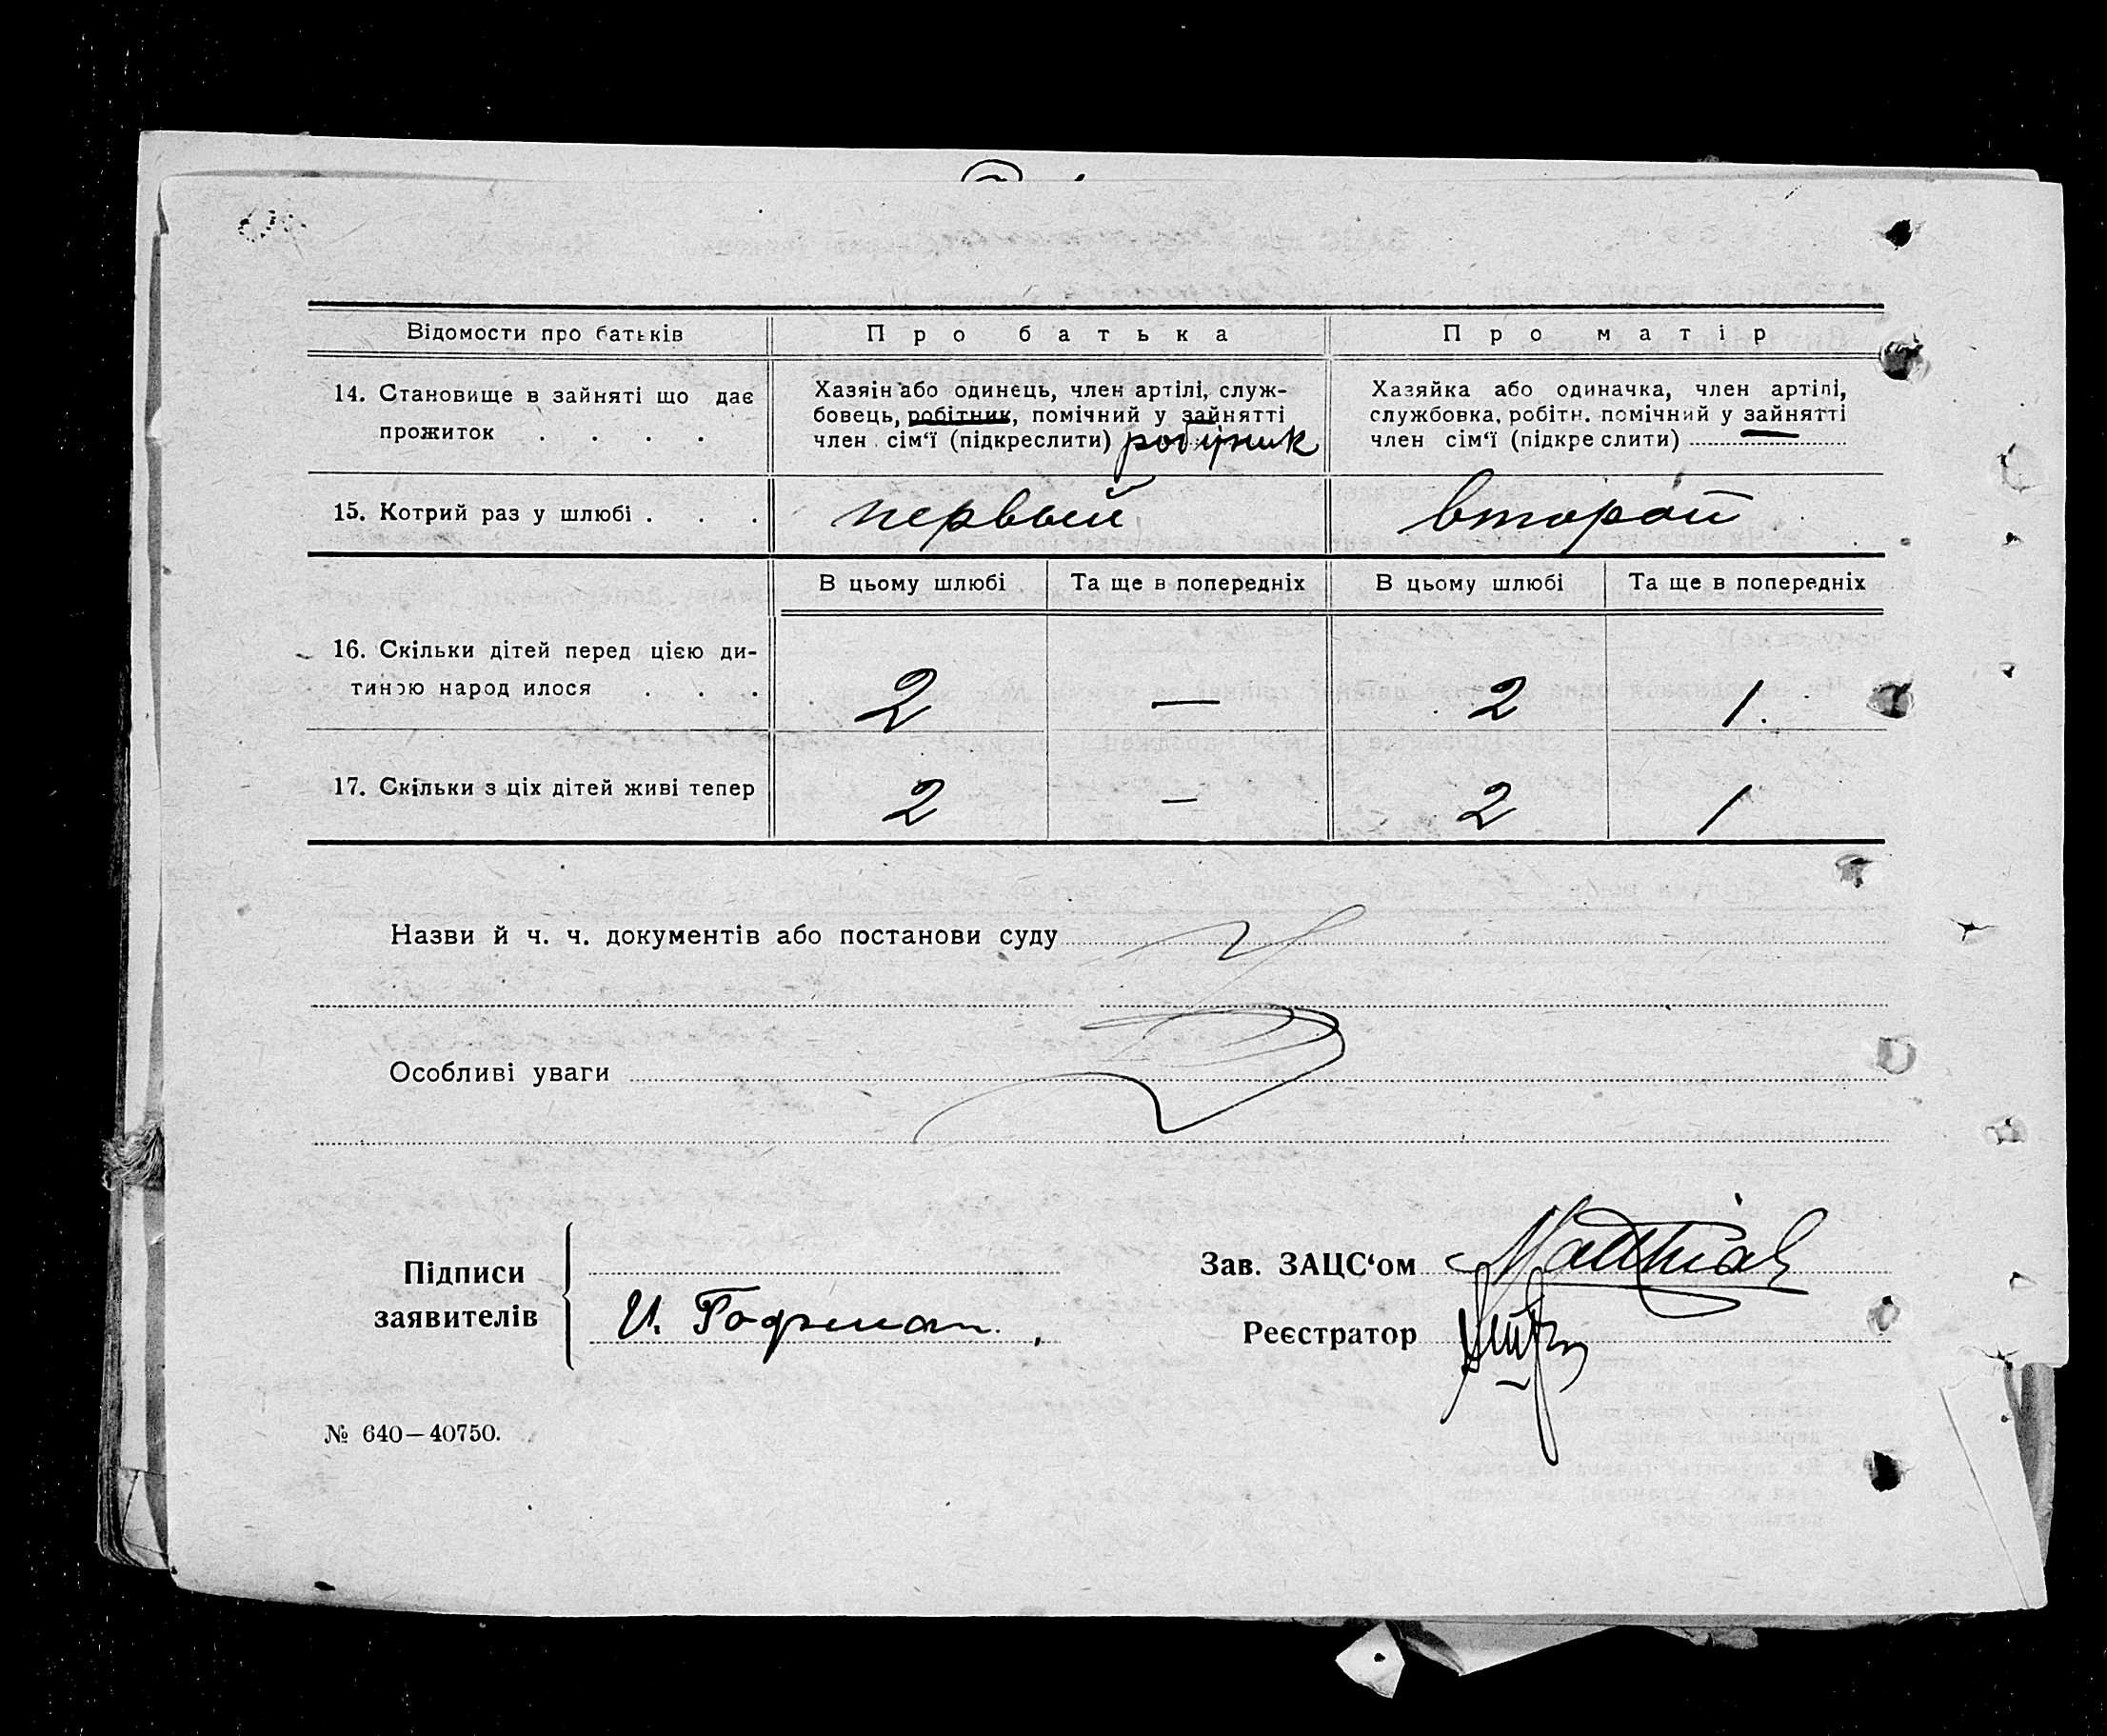 Відомости про батьків
Про батька
Про матір
14. Становище в зайняті що дає
прожиток . . . .
Хазяін або одинець, член артілі, служ-
бовець, робітник, помічний у зайнятті
член сім‘ї (підкреслити) робітник
Хазяйка або одиначка, член артілі,
службовка, робітн. помічний у зайнятті
член сім‘ї (підкреслити) —
15. Котрий раз у шлюбі . . .
первый
второй
В цьому шлюбі
Та ще в попередніх
В цьому шлюбі
Та ще в попередніх
16. Скільки дітей перед цією ди-
тиною народилося . . .
2
—
2
1.
17. Скільки з ціх дітей живі тепер
2
—
2
1
Назви й ч. ч. документів або постанови суду
Особливі уваги
Підписи
заявителів
И. Гофман.
Зав. ЗАЦС‘ом Matthias
Реєстратор
№ 640—40750.